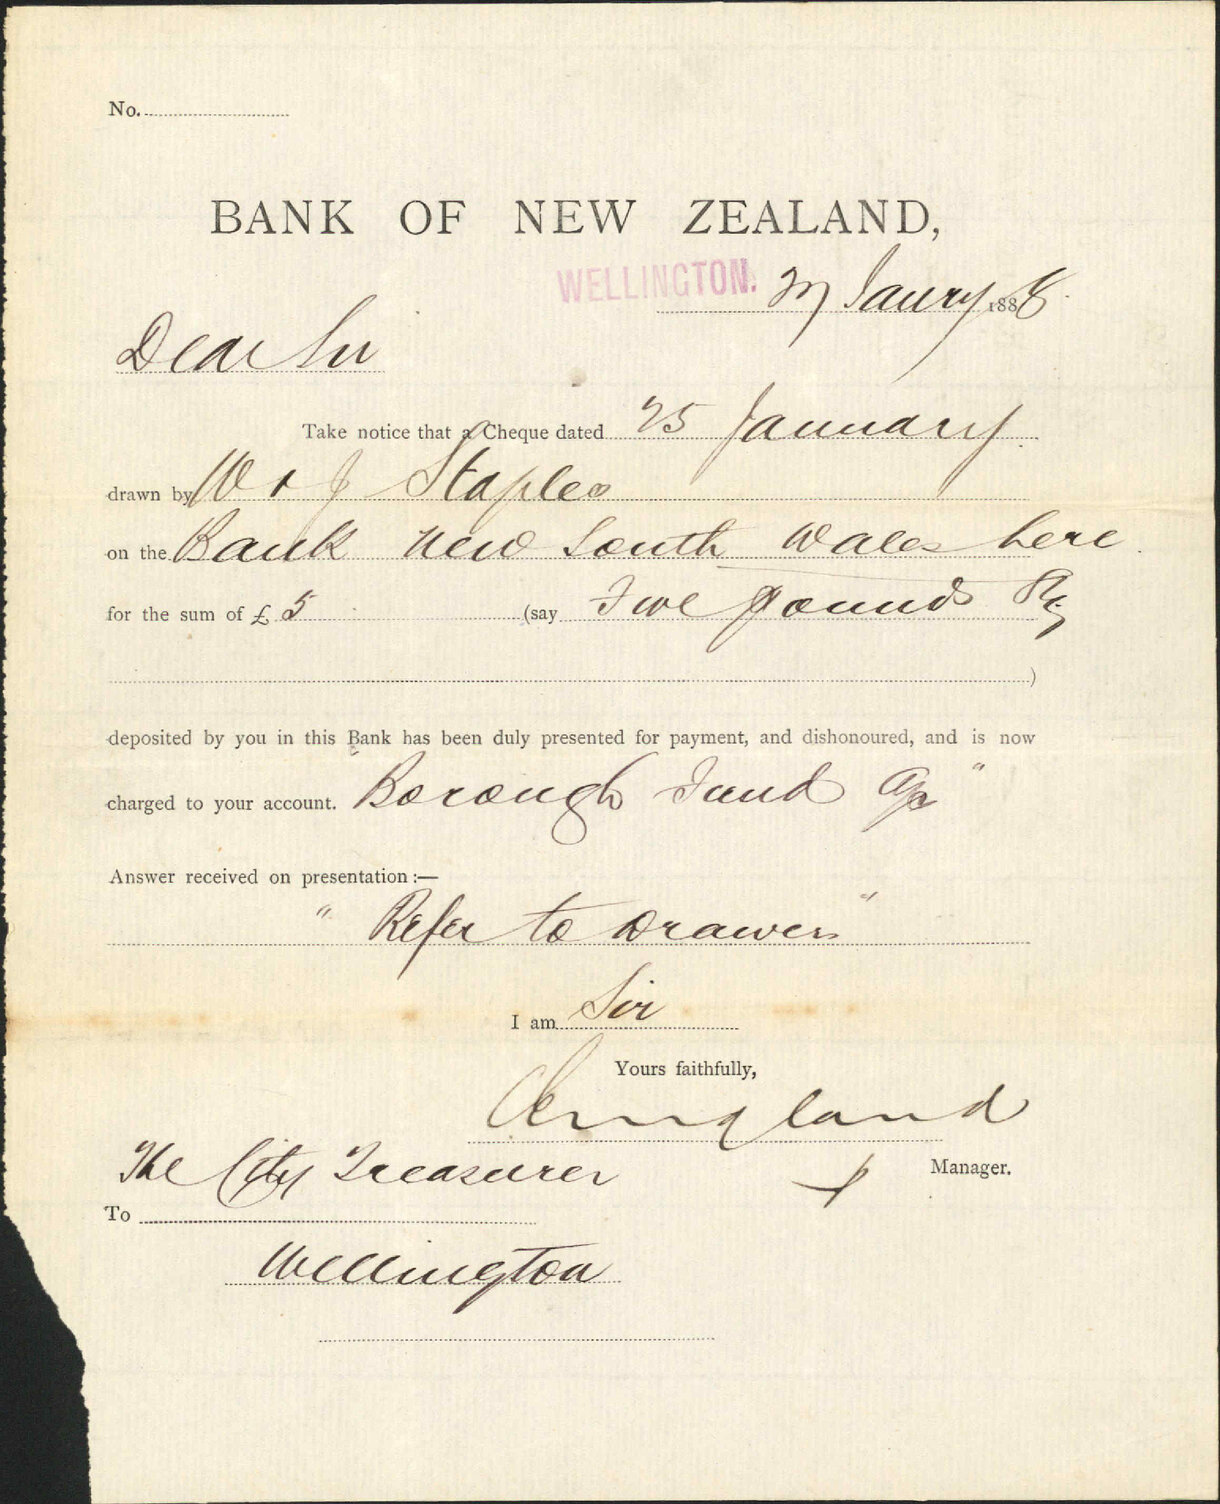 No.
BANK OF NEW ZEALAND,
WELLINGTON. 27 Janry 1888.
Dear Sir
Take notice that a Cheque dated 25 January
drawn by W & J Staples
on the Bank New South Wales here
for the sum of £ 5 (say Five pounds
)
deposited by you in this Bank has been duly presented for payment, and dishonoured, and is now
charged to your account. "Borough Fund a/c"
Answer received on presentation :—
"Refer to Drawers"
I am Sir
Yours faithfully,
Manager.
The City Treasurer
To
Wellington